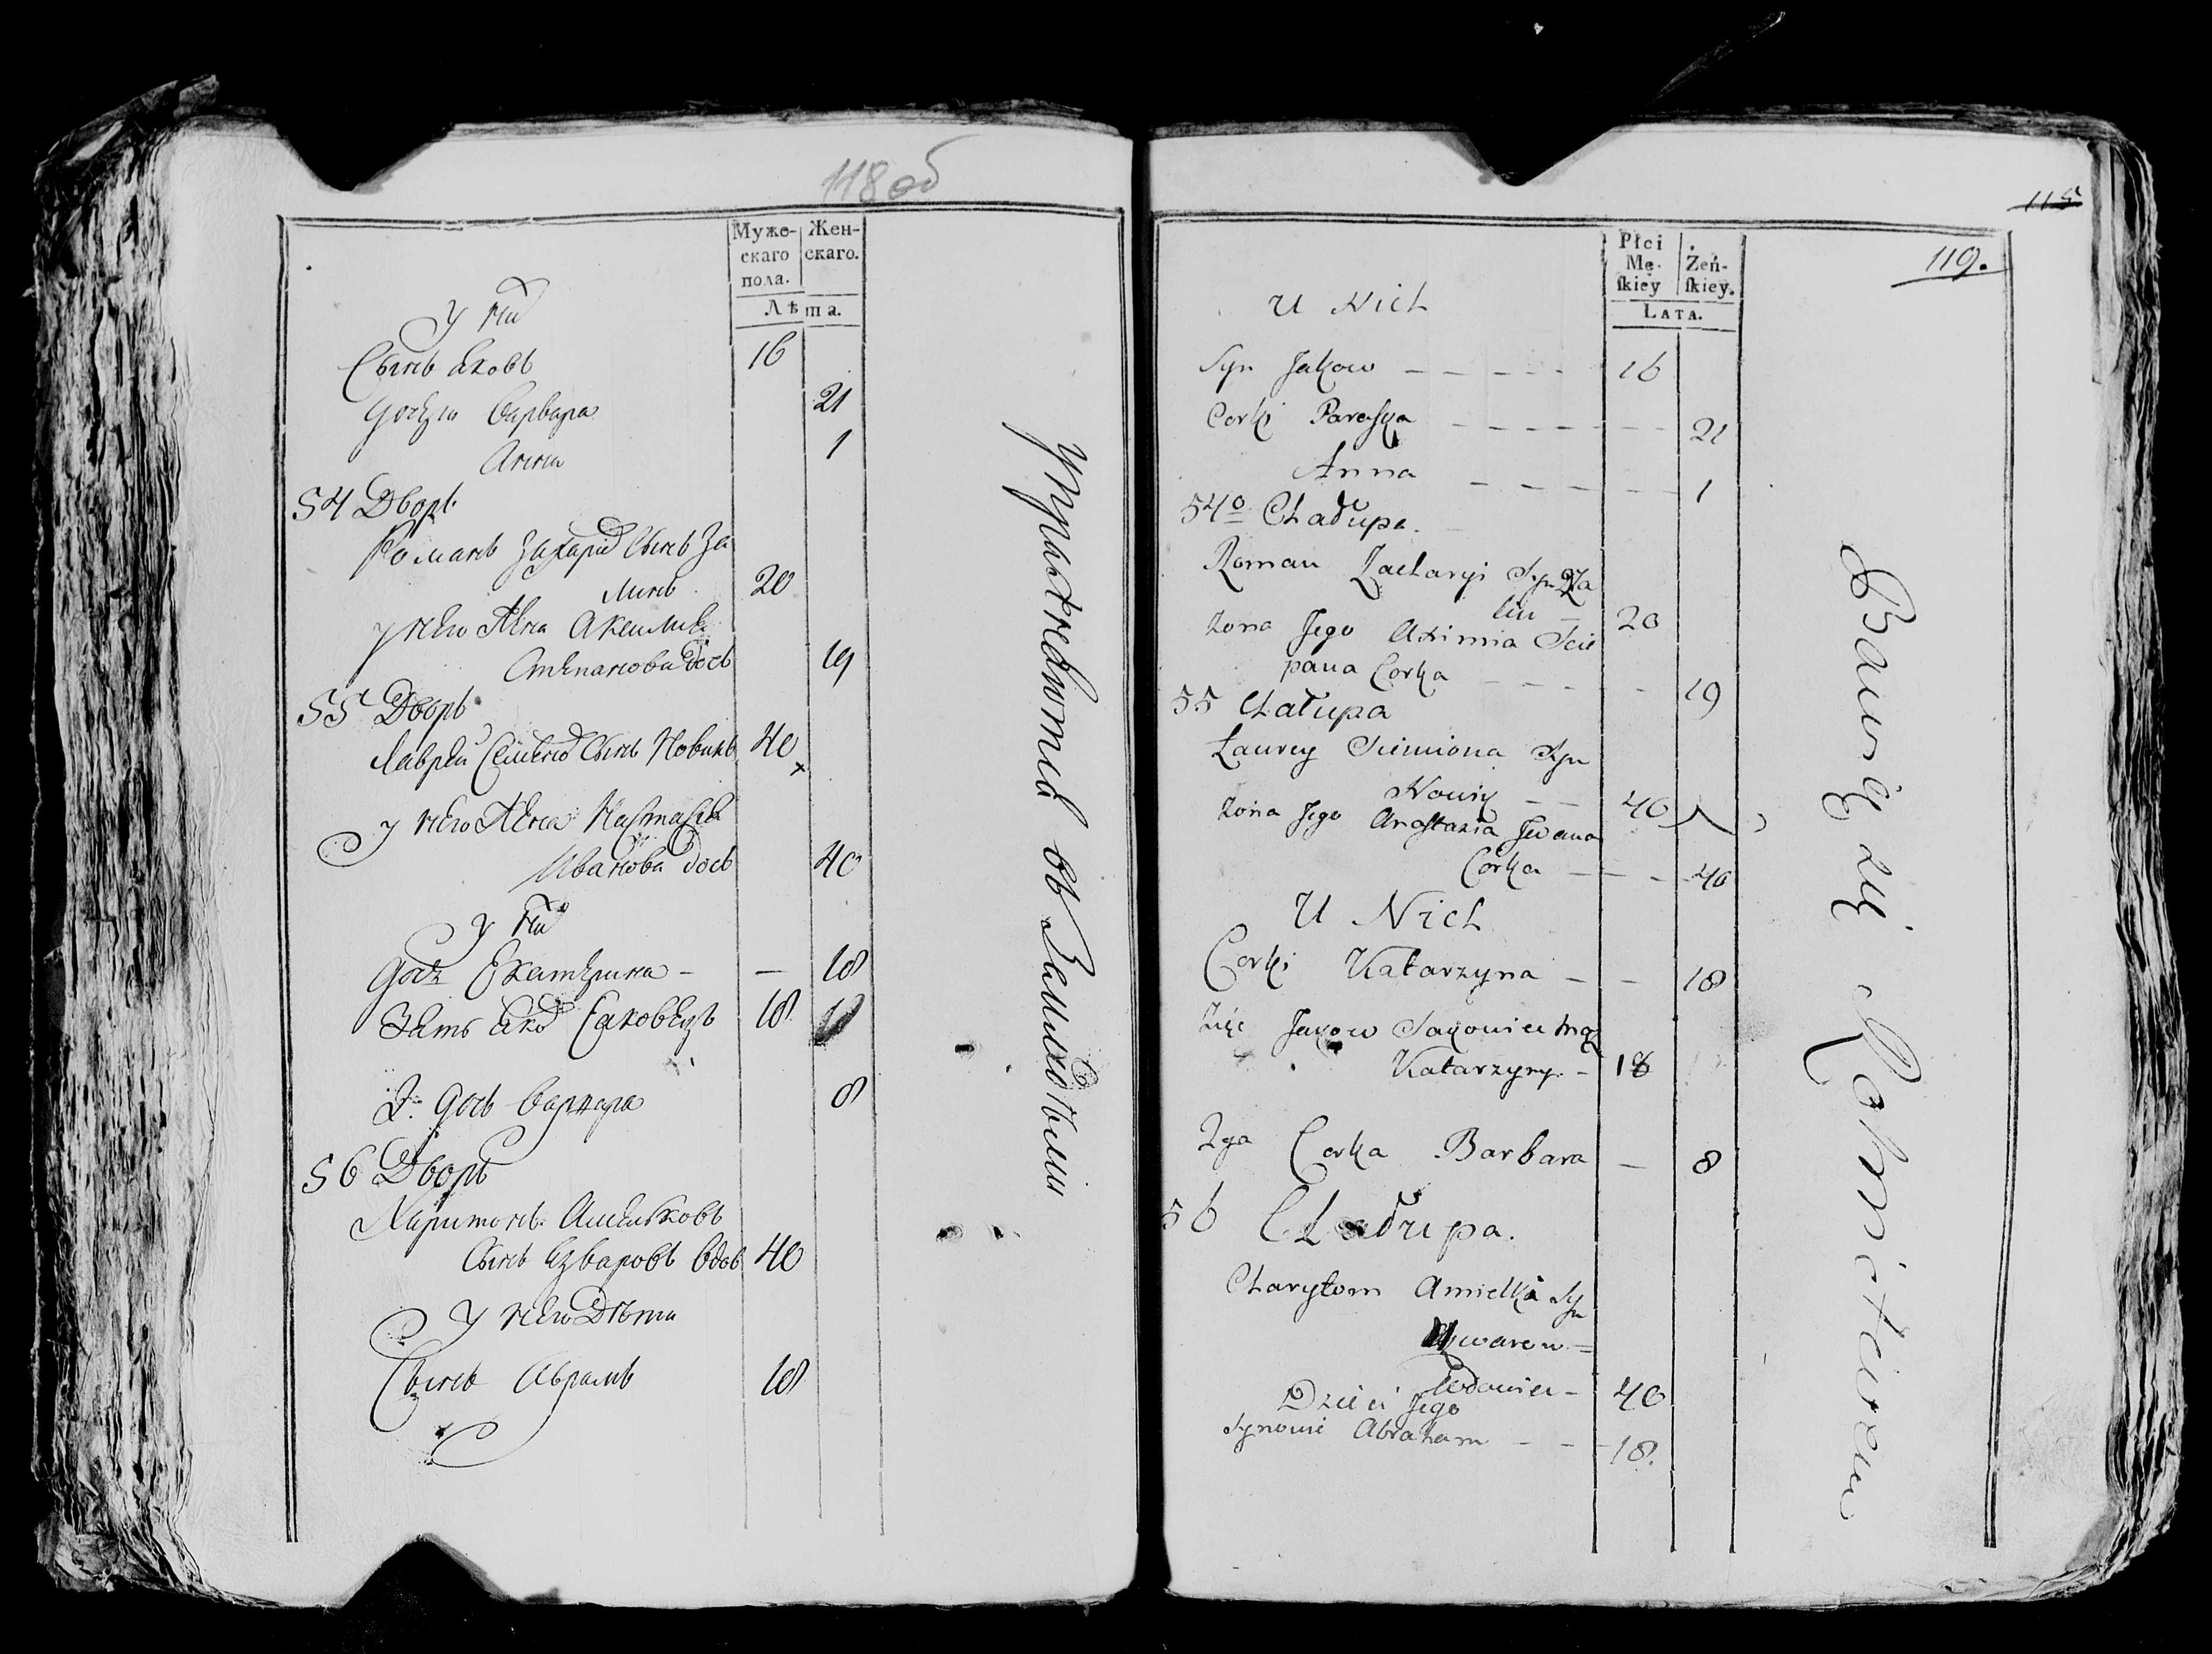 118 об
Муже-
скаго
пола.
Жен-
скаго.
Лѣта.
У них
Сынъ Яковъ 16
Дочери Варвара 21
Анна 1
54 Дворъ
Романъ Захарiя Сынъ За
линъ 20
у него жена Акемлия
Степанова дочь 19
55 Дворъ
Лаврей Семена Сынъ Новикъ 40
у него жена Настасiя
Иванова дочь 40
У них
дочь Екатерина - — 18
Зять Яков Саковецъ 18
2. дочь Варвара 8
56 Дворъ
Харитонъ Амельковъ
Сынъ Язваровъ вдов 40
У него Дѣти
Сынъ Абрамъ 18
Упражняются въ Земледѣлии
115
119.
Płci
Mę-
ſkiey
Żeń-
ſkiey.
LATA.
U Nich
Syn Jakow — — — — — 16
Corki Paraska — — — — — — 21
Anna — — — — — 1
54o Chałupa.
Roman Zacharyi Syn Za
lin — 20
żona Jego Axinia Scie
pana Corka — — — — 19
55 Chałupa
Laurey Siemiona Syn
Nowik — — 40
żona Jego Anastazia Jwana
Corka — — — 40
U Nich
Corki Katarzyna — — 18
Zięć Jakow Sakowiec mąż
Katarzyny — 18
2ga Corka Barbara — 8
56 Chałupa.
Charytom Amielka Syn
wdowiec — 40
Dzieci Jego
Synowie Abraham — — 18.
Bawią się Rolnictwem